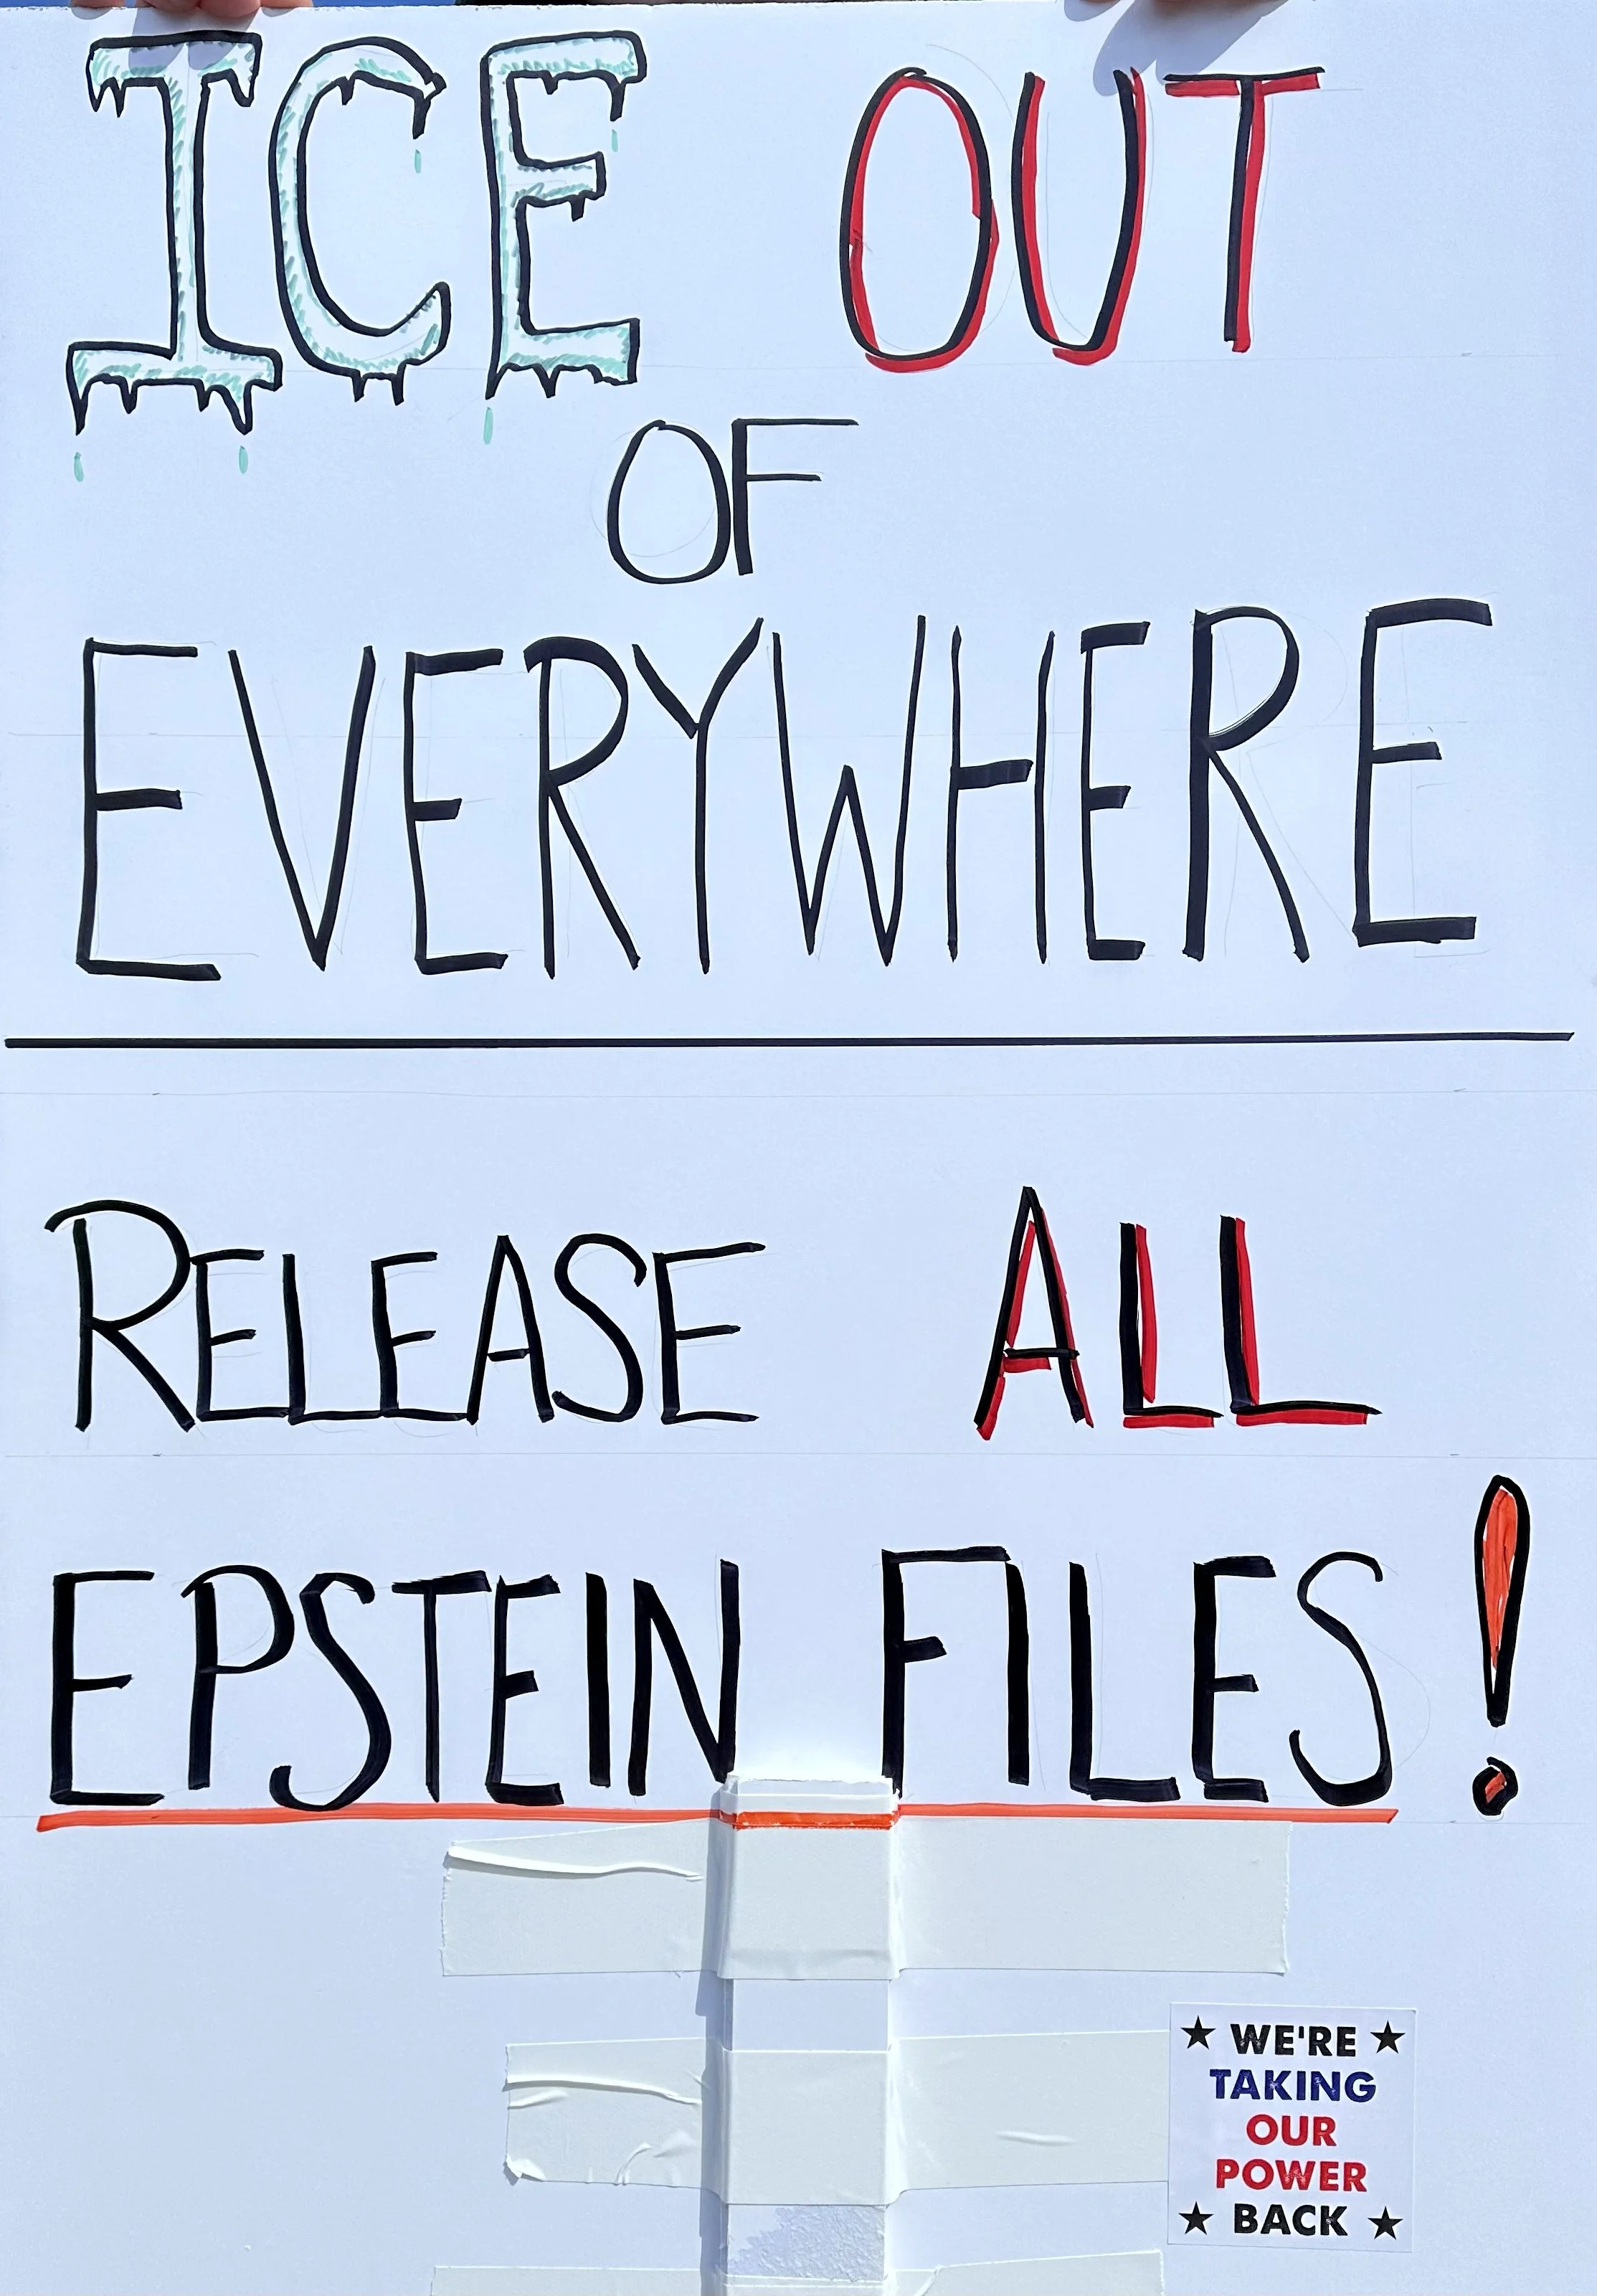 ICE OUT
OF
EVERYWHERE
RELEASE ALL
EPSTEIN FILES!
★ WE'RE ★
TAKING
OUR
POWER
★ BACK ★